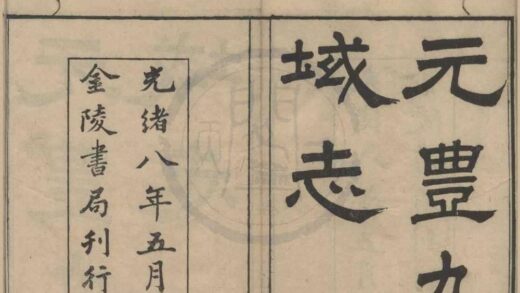 元豊九
域志
光緒八年五月
金陵書局刊行